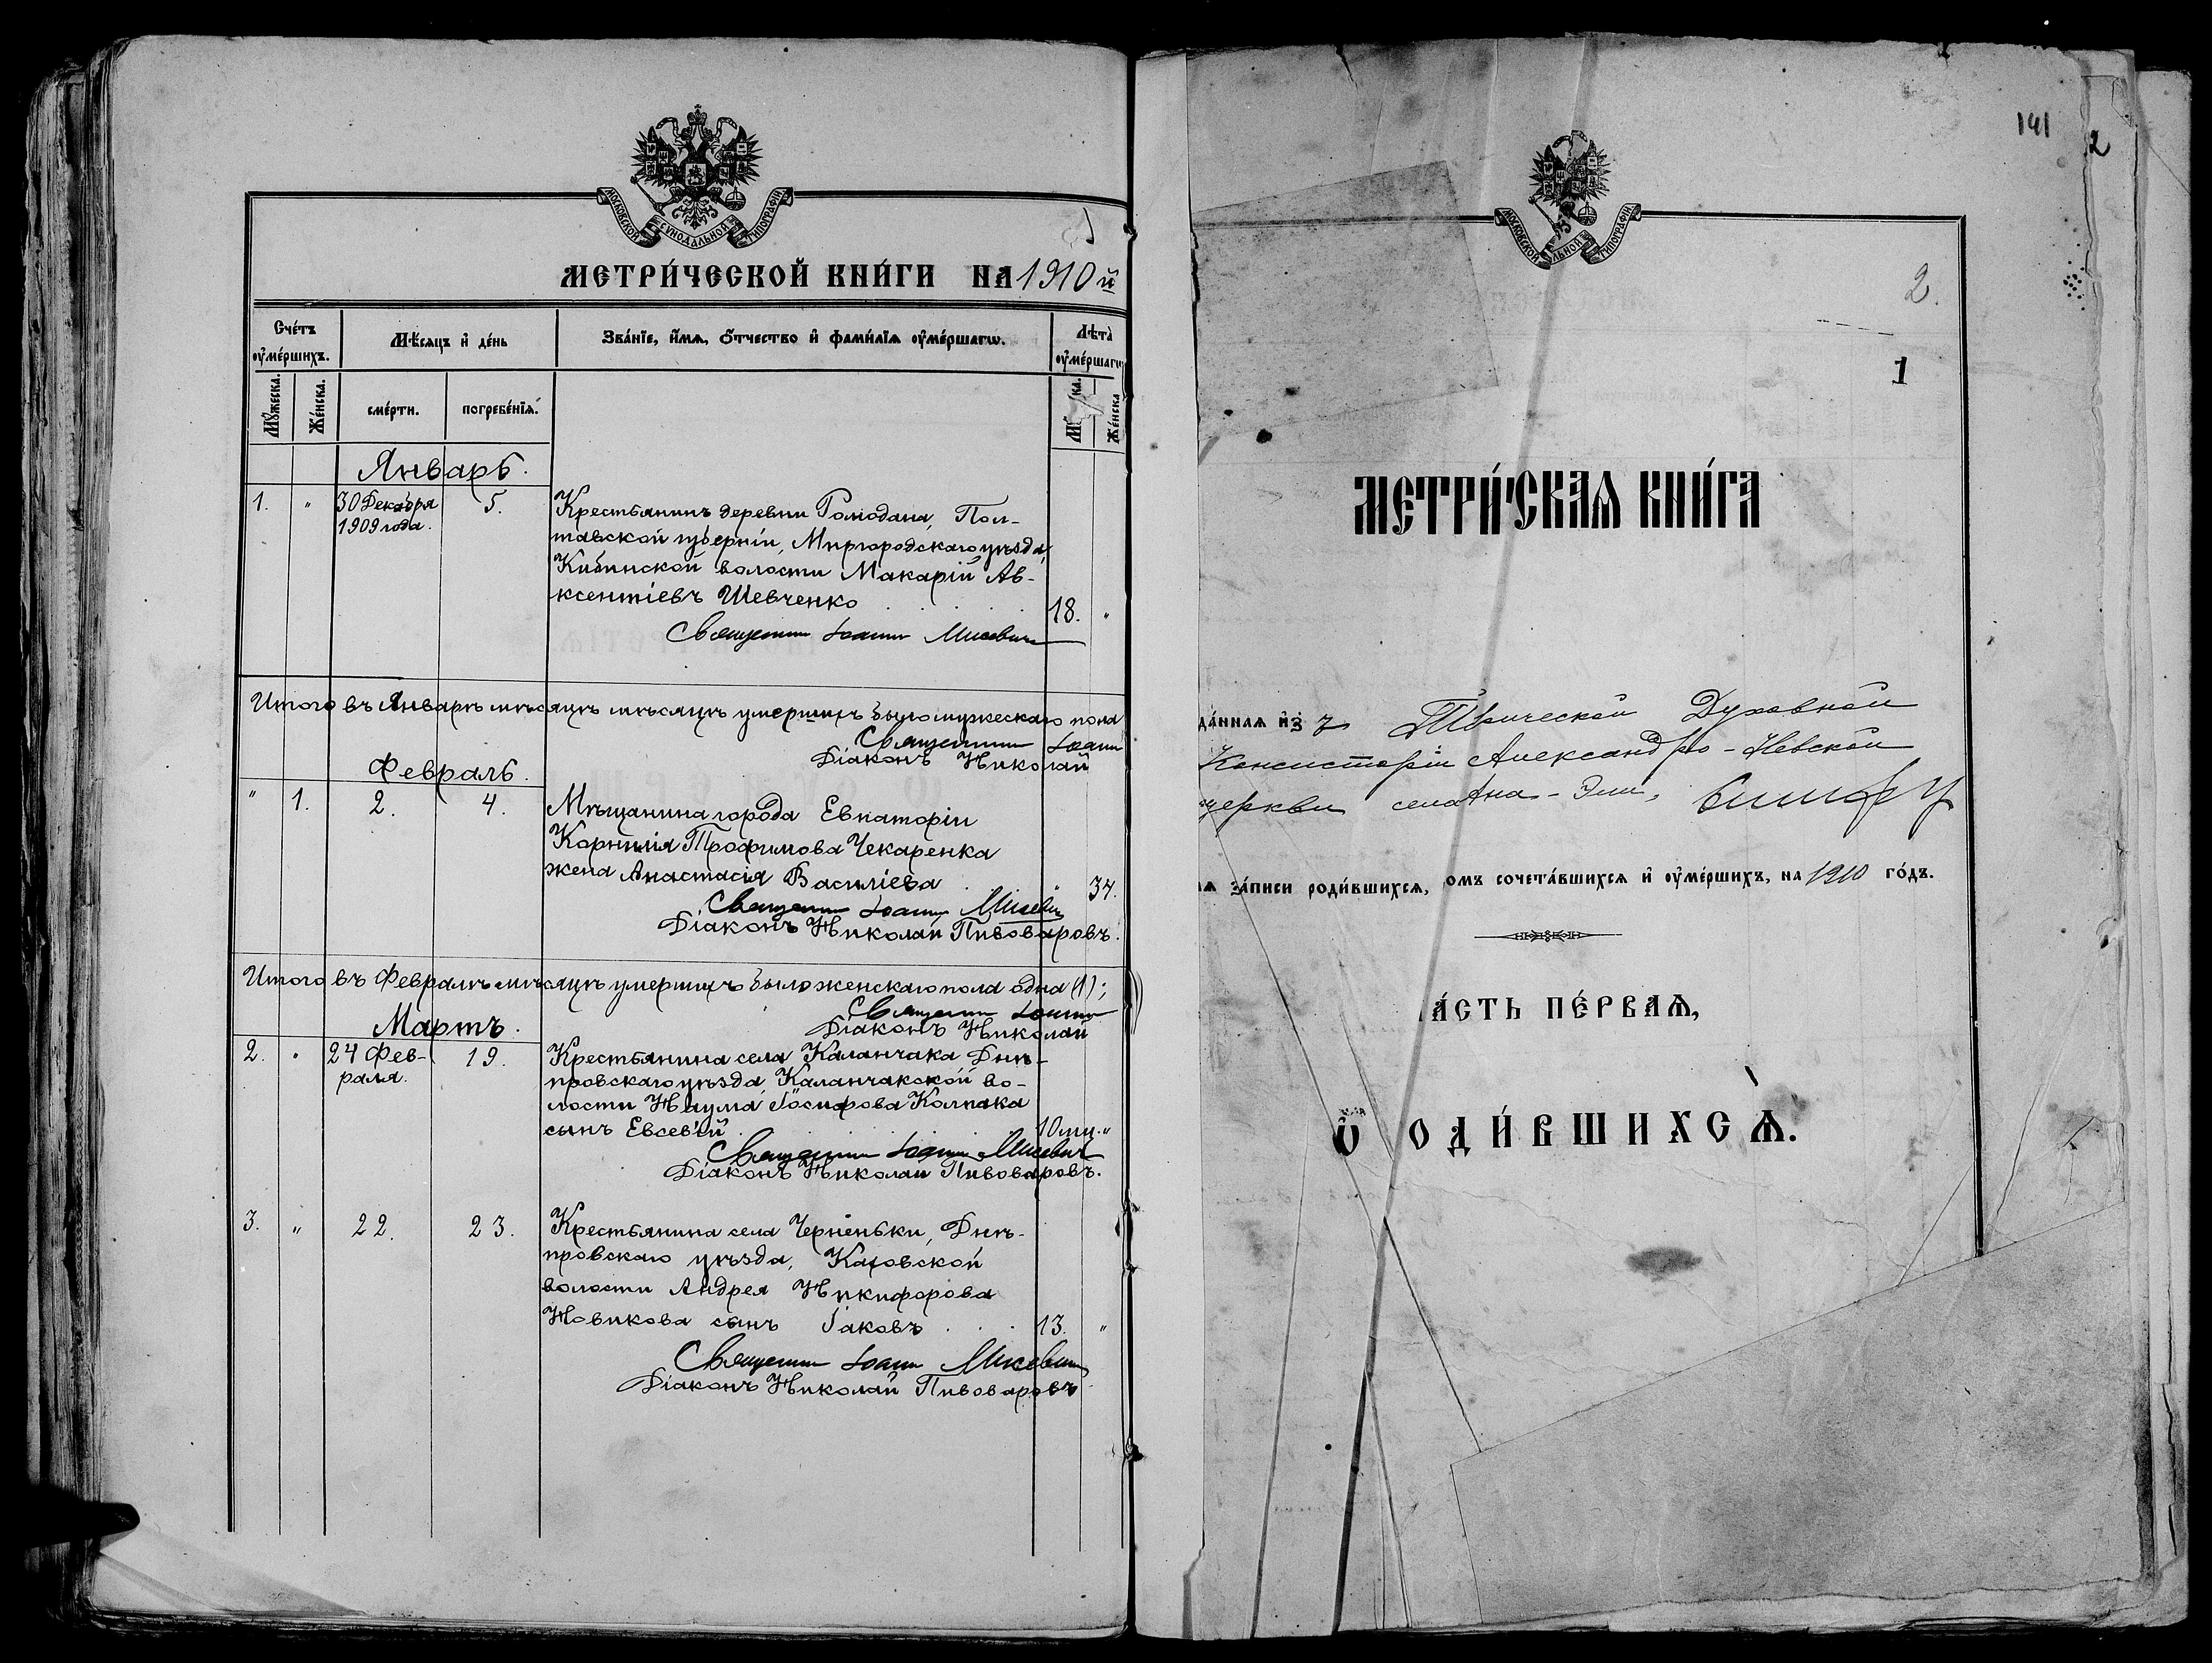 МОСКОВСКОЙ СѴНОДАЛЬНОЙ ТИПОГРАФІИ.
МЕТРИ́ЧЕСКОЙ КНИ́ГИ НА 1910 й
Сче́тъ оу҆ме́ршихъ.
Мѣ́сяцъ и҆ де́нь
Зва́нїе, и҆́мя, ѻ҆́тчество и҆ фами́лїя оу҆ме́ршагѡ.
Лѣ́та оу҆ме́ршагѡ
Мꙋ́жеска.
Же́нска.
сме́рти.
погребе́нїя.
Же́нска
Январь.
1. " 30 Декабря 5. Крестьянинъ деревни Ромодана, Пол-
1909 года. тавской губерніи, Миргородскаго уѣзда,
Кибинской волости Макарій Ав-
ксентіевъ Шевченко 18. "
Священникъ Іоаннъ Мисевичъ
Итого въ Январѣ мѣсяцѣ мѣсяцѣ умершихъ было мужескаго пола
Священникъ Іоаннъ
Діаконъ Николай
Февраль.
" 1. 2. 4. Мѣщанина города Евпаторіи
Корнилія Трофимова Чекаренка
жена Анастасія Василіева " 34.
Священникъ Іоаннъ Мисевичъ
Діаконъ Николай Пивоваровъ.
Итого въ Февралѣ мѣсяцѣ умершихъ было женскаго пола одна (1);
Священникъ Іоаннъ
Діаконъ Николай
Мартъ.
2. " 24 Фев- 19. Крестьянина села Каланчака Днѣ-
раля. провскаго уѣзда, Каланчакской во-
лости Наума Іосифова Колпака
сынъ Евсевій 10 мц. "
Священникъ Іоаннъ Мисевичъ
Діаконъ Николай Пивоваровъ.
3. " 22. 23. Крестьянина села Черненьки, Днѣ-
провскаго уѣзда, Каховской
волости Андрея Никифорова
Новикова сынъ Іаковъ 13. "
Священникъ Іоаннъ Мисевичъ
Діаконъ Николай Пивоваровъ
141
2
МОСКОВСКОЙ ЛЬНОЙ ТИПОГРАФІИ.
2.
1
МЕТРИ́ СКАЯ КНИ́ГА
да́нная и҆зъ Таврической Духовной
Консисторіи Александро-Невской
церкви села Ана-Эли,
за́писи роди́вшихся, омъ сочета́вшихся и҆ оу҆ме́ршихъ, на 1910 го́дъ.
А́СТЬ ПЕ́РВАЯ,
Ѽ ОДИ́ВШИХСЯ̀.